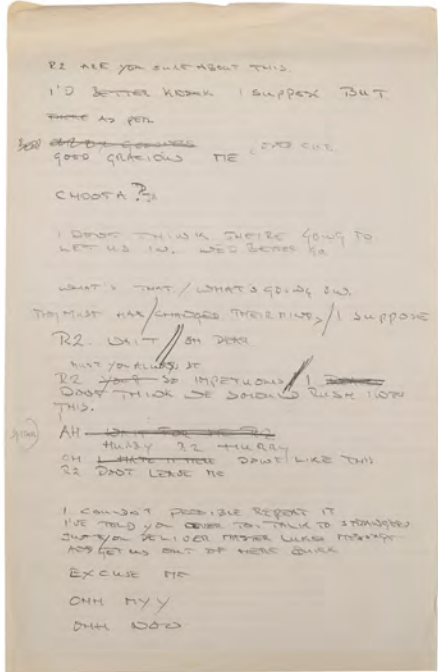 R2 ARE YOU SURE ABOUT THIS.
I'D BETTER KNOCK I SUPPOSE BUT
THERE AS PER
GOOD GRACIOUS ME
CHOOTA?
I DONT THINK THEIRE GOING TO
LET US IN. WED BETTER GO
WHAT'S THAT / WHAT'S GOING ON.
THEY MUST HAV / CHANGED THEIR MINDS / I SUPPOSE
R2. WAIT // OH DEAR.
MUST YOU ALWAYS BE
R2 SO IMPETUOUS / I
DONT THINK WE SHOULD RUSH INTO
THIS.
AH WAIT FOR ME R2
HURRY R2 HURRY
OH I HATE IT HERE DONT LIKE THIS
R2 DONT LEAVE ME
I COULDNT POSSIBLE REPEAT IT
I'VE TOLD YOU NEVER TO TALK TO STRANGERS
JUST YOU DELIVER MASTER LUKES MESSAGE
AND GET US OUT OF HERE QUICK
EXCUSE ME
OHH MYY
OHH NOO